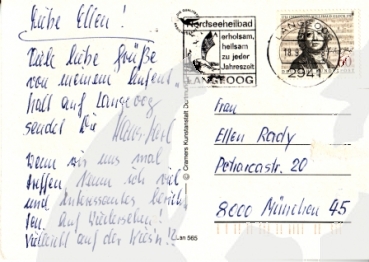 Liebe Ellen!
Viele liebe Grüße
von meinem Aufent-
halt auf Langeoog
sendet Dir
Wenn wir uns mal
treffen kann ich viel
und Interessantes berich-
ten. Auf Wiedersehen!
Vielleicht auf der Wies'n!?
© Cramers Kunstanstalt Dortmund
Lan 565
Nordseeheilbad
erholsam,
heilsam
zu jeder
Jahreszeit
LANGEOOG
LANGEOOG
18.
2941
60
Frau
Ellen Rady
Petrarcastr. 20
8000 München 45